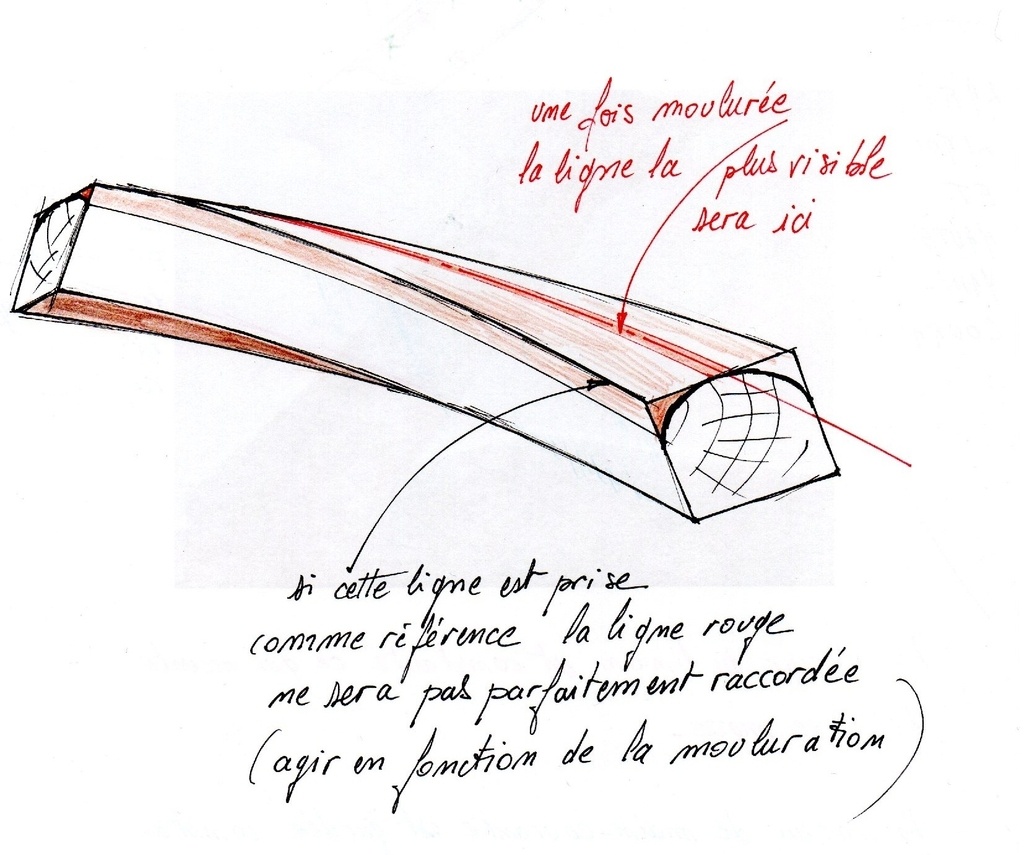 une fois moulurée
la ligne la plus visible
sera ici
si cette ligne est prise
comme référence la ligne rouge
ne sera pas parfaitement raccordée
(agir en fonction de la mouluration)